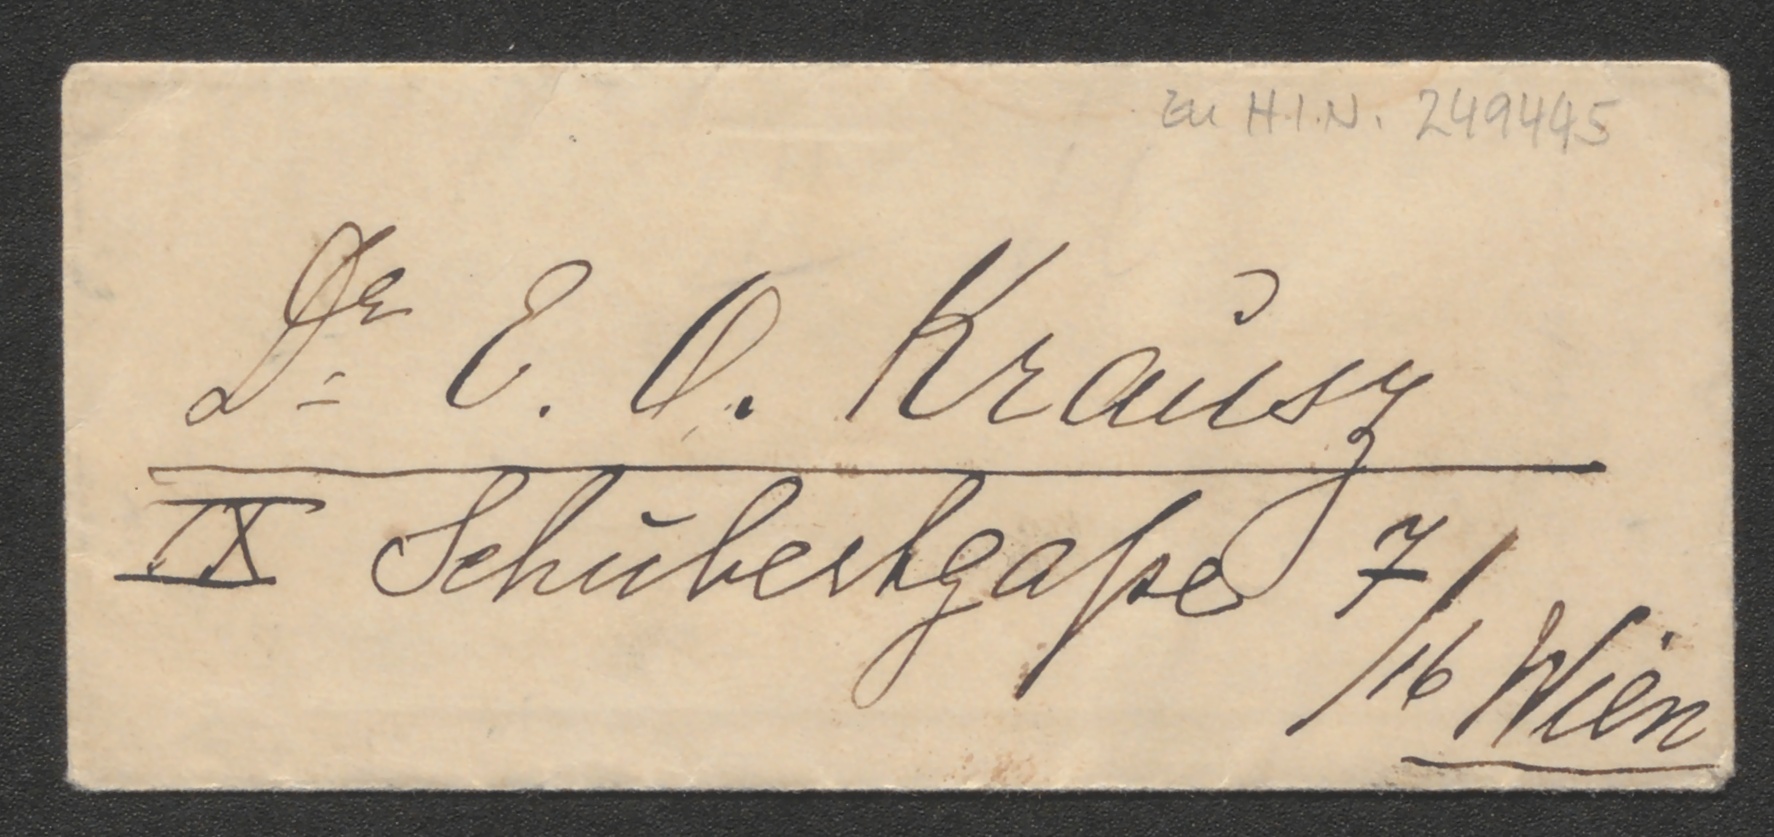 zu H.I.N. 249445
Dr. E. O. Krausz
IX Schubertgaße 7/16 Wien